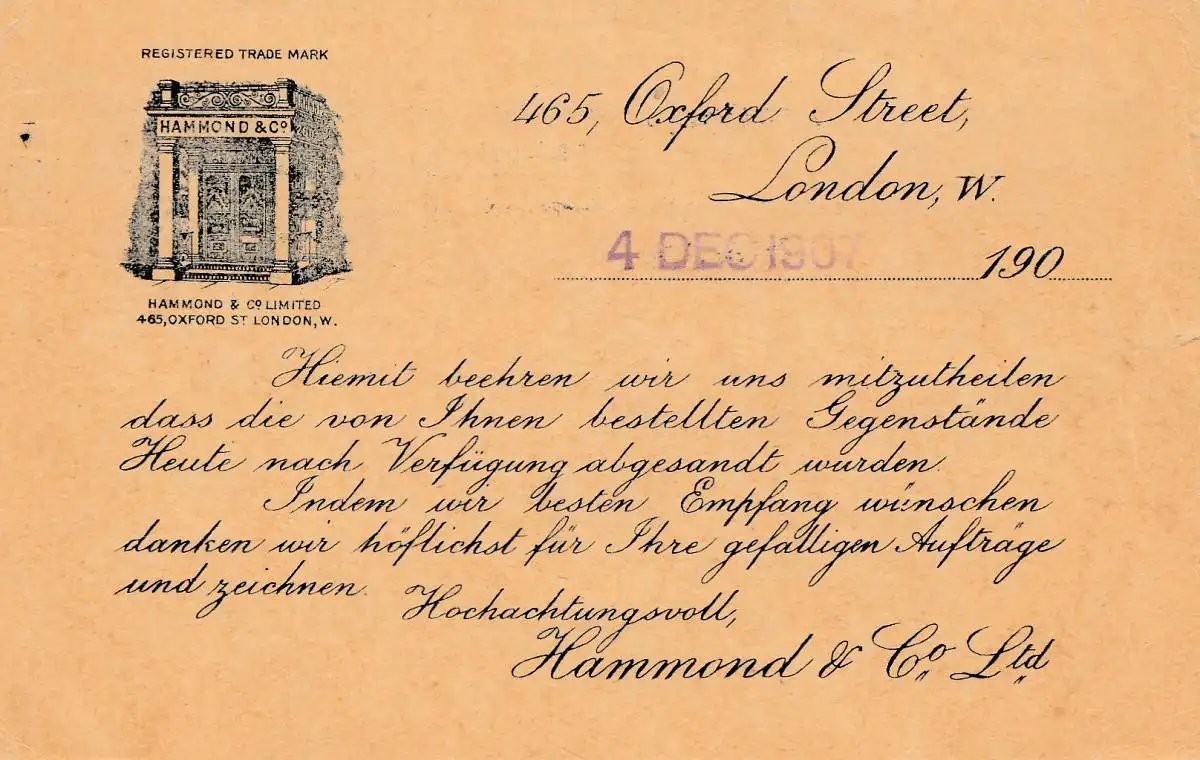 REGISTERED TRADE MARK
HAMMOND & Co
HAMMOND & Co LIMITED
465, OXFORD ST LONDON, W.
465, Oxford Street,
London, W.
4 DEC 1907
190
Hiemit beehren wir uns mitzutheilen
dass die von Ihnen bestellten Gegenstände
Heute nach Verfügung abgesandt wurden.
Indem wir besten Empfang wünschen
danken wir höflichst für Ihre gefalligen Aufträge
und zeichnen.
Hochachtungsvoll,
Hammond & Co Ltd